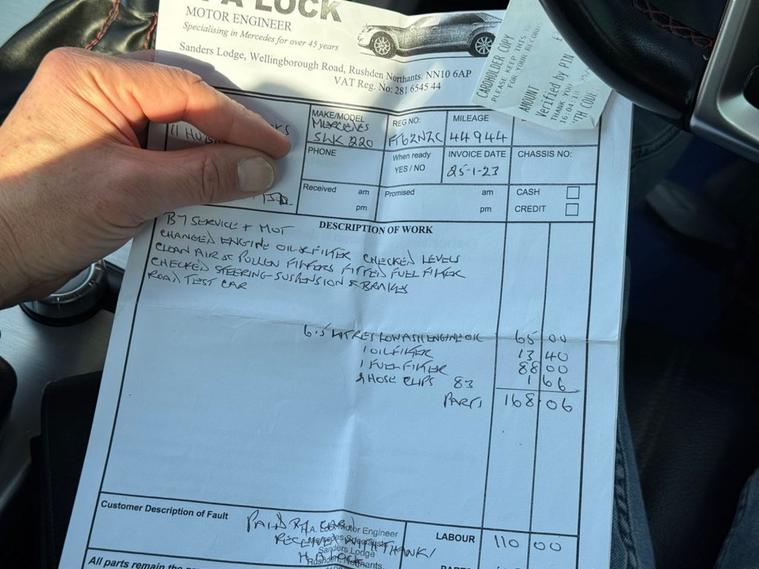 A LOCK
MOTOR ENGINEER
Specialising in Mercedes for over 45 years
Sanders Lodge, Wellingborough Road, Rushden Northants. NN10 6AP
VAT Reg. No: 281 6545 44
CARDHOLDER COPY
PLEASE KEEP THIS
FOR YOUR RECORDS
AMOUNT
Verified by PIN
THANK YOU
MAKE/MODEL
MERCEDES
SLK 220
REG NO:
MILEAGE
44944
PHONE
When ready
YES / NO
INVOICE DATE
25-1-23
CHASSIS NO:
Received am
pm
Promised am
pm
CASH
CREDIT
DESCRIPTION OF WORK
B7 SERVICE + MOT
CHANGED ENGINE OIL & FILTER CHECKED LEVELS
CLEAN AIR & POLLEN FILTERS FITTED FUEL FILTER
CHECKED STEERING SUSPENSION & BRAKES
ROAD TEST CAR
6.5 LITRES LOW ASH ENGINE OIL 65 00
1 OIL FILTER 13 40
1 FUEL FILTER 88 00
2 HOSE CLIPS 83 1 66
PARTS 168.06
Customer Description of Fault
PAID BY CARD
RECEIVED WITH THANKS
Motor Engineer
Sanders Lodge
LABOUR 110 00
All parts remain the